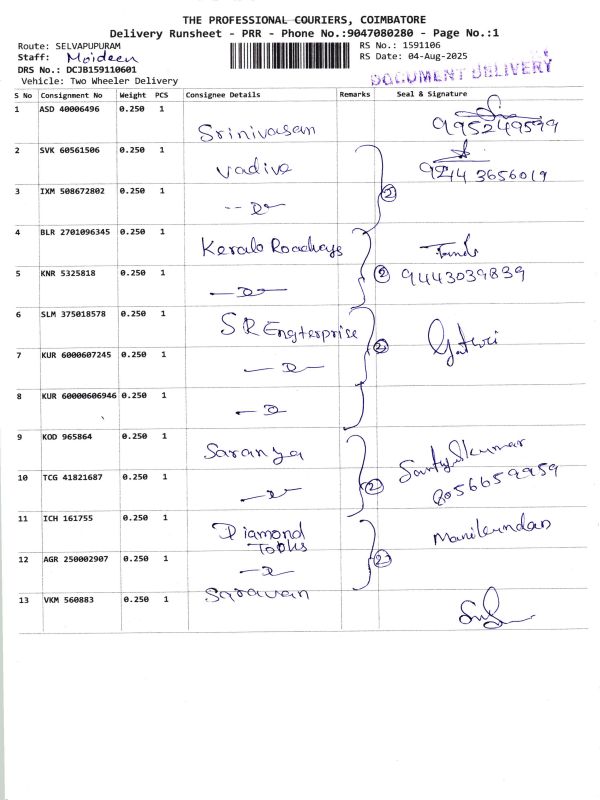 THE PROFESSIONAL COURIERS, COIMBATORE
Delivery Runsheet - PRR - Phone No.:9047080280 - Page No.:1
Route: SELVAPUPURAM
RS No.: 1591106
Staff: Moideen
RS Date: 04-Aug-2025
DRS No.: DCJB159110601
DOCUMENT DELIVERY
Vehicle: Two Wheeler Delivery
S No Consignment No Weight PCS Consignee Details Remarks Seal & Signature
1 ASD 40006496 0.250 1 Srinivasan 9952495
2 SVK 60561506 0.250 1 Vadive 9244 3656019
3 IXM 508672802 0.250 1 2
4 BLR 2701096345 0.250 1 Kerala Roadways
5 KNR 5325818 0.250 1 2 9443039839
6 SLM 375018578 0.250 1 SR Engterprise
7 KUR 6000607245 0.250 1 2
8 KUR 60000606946 0.250 1
9 KOD 965864 0.250 1 Saranya
10 TCG 41821687 0.250 1 2 8056659959
11 ICH 161755 0.250 1 Diamond
Tools Manikundan
12 AGR 250002907 0.250 1 2
13 VKM 560883 0.250 1 Saravan